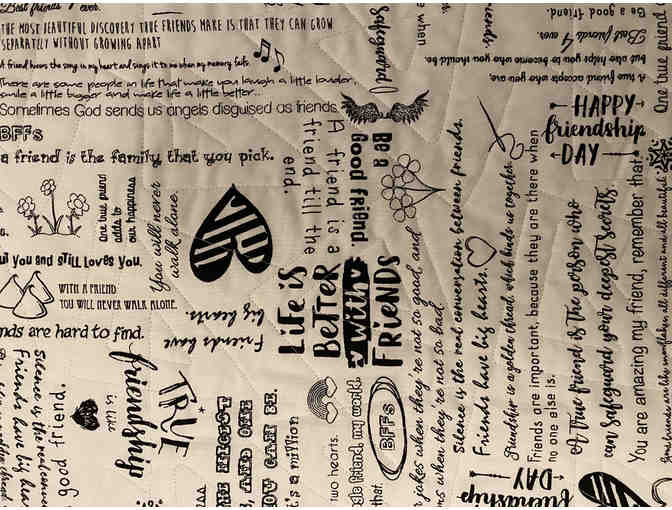 Best friends ever.
THE MOST BEAUTIFUL DISCOVERY TRUE FRIENDS MAKE IS THAT THEY CAN GROW
SEPARATELY WITHOUT GROWING APART
A friend knows the song in my heart and sings it to me when my memory fails.
There are some people in life that make you laugh a little louder,
smile a little bigger and make life a little better...
Sometimes God sends us angels disguised as friends.
BFFs
a friend is the family that you pick.
One true friend
adds to
our happiness
You will never
walk alone.
you and still Loves You.
WITH A FRIEND
YOU WILL NEVER WALK ALONE.
nds are hard to find.
Friends have
big hearts.
A friend is a
friend till the
end.
Be a
Good friend.
Safeguard
e when
Life is
BeTTeR
with
FRiENDS
TRUE
friendship
is like
good friend.
Silence is the real conver
Friends have big hear
it's a million
two hearts.
gle friend, my world.
that.
BFFs
r jokes when they're not so good, and
ms when they're not so bad.
Silence is the real conversation between friends.
Friends have big hearts.
Friendship is a golden thread, which binds us together.
Friends are important, because they are there when
no one else is.
A True friend is The person who
can Safeguard your deepest secrets.
You are amazing my friend, remember that.
Be a good friend.
Best friends 4 ever.
A true friend accepts who you are,
but also helps you become who you should be.
One true friend
HAPPY
friendship
DAY
friendship
DAY